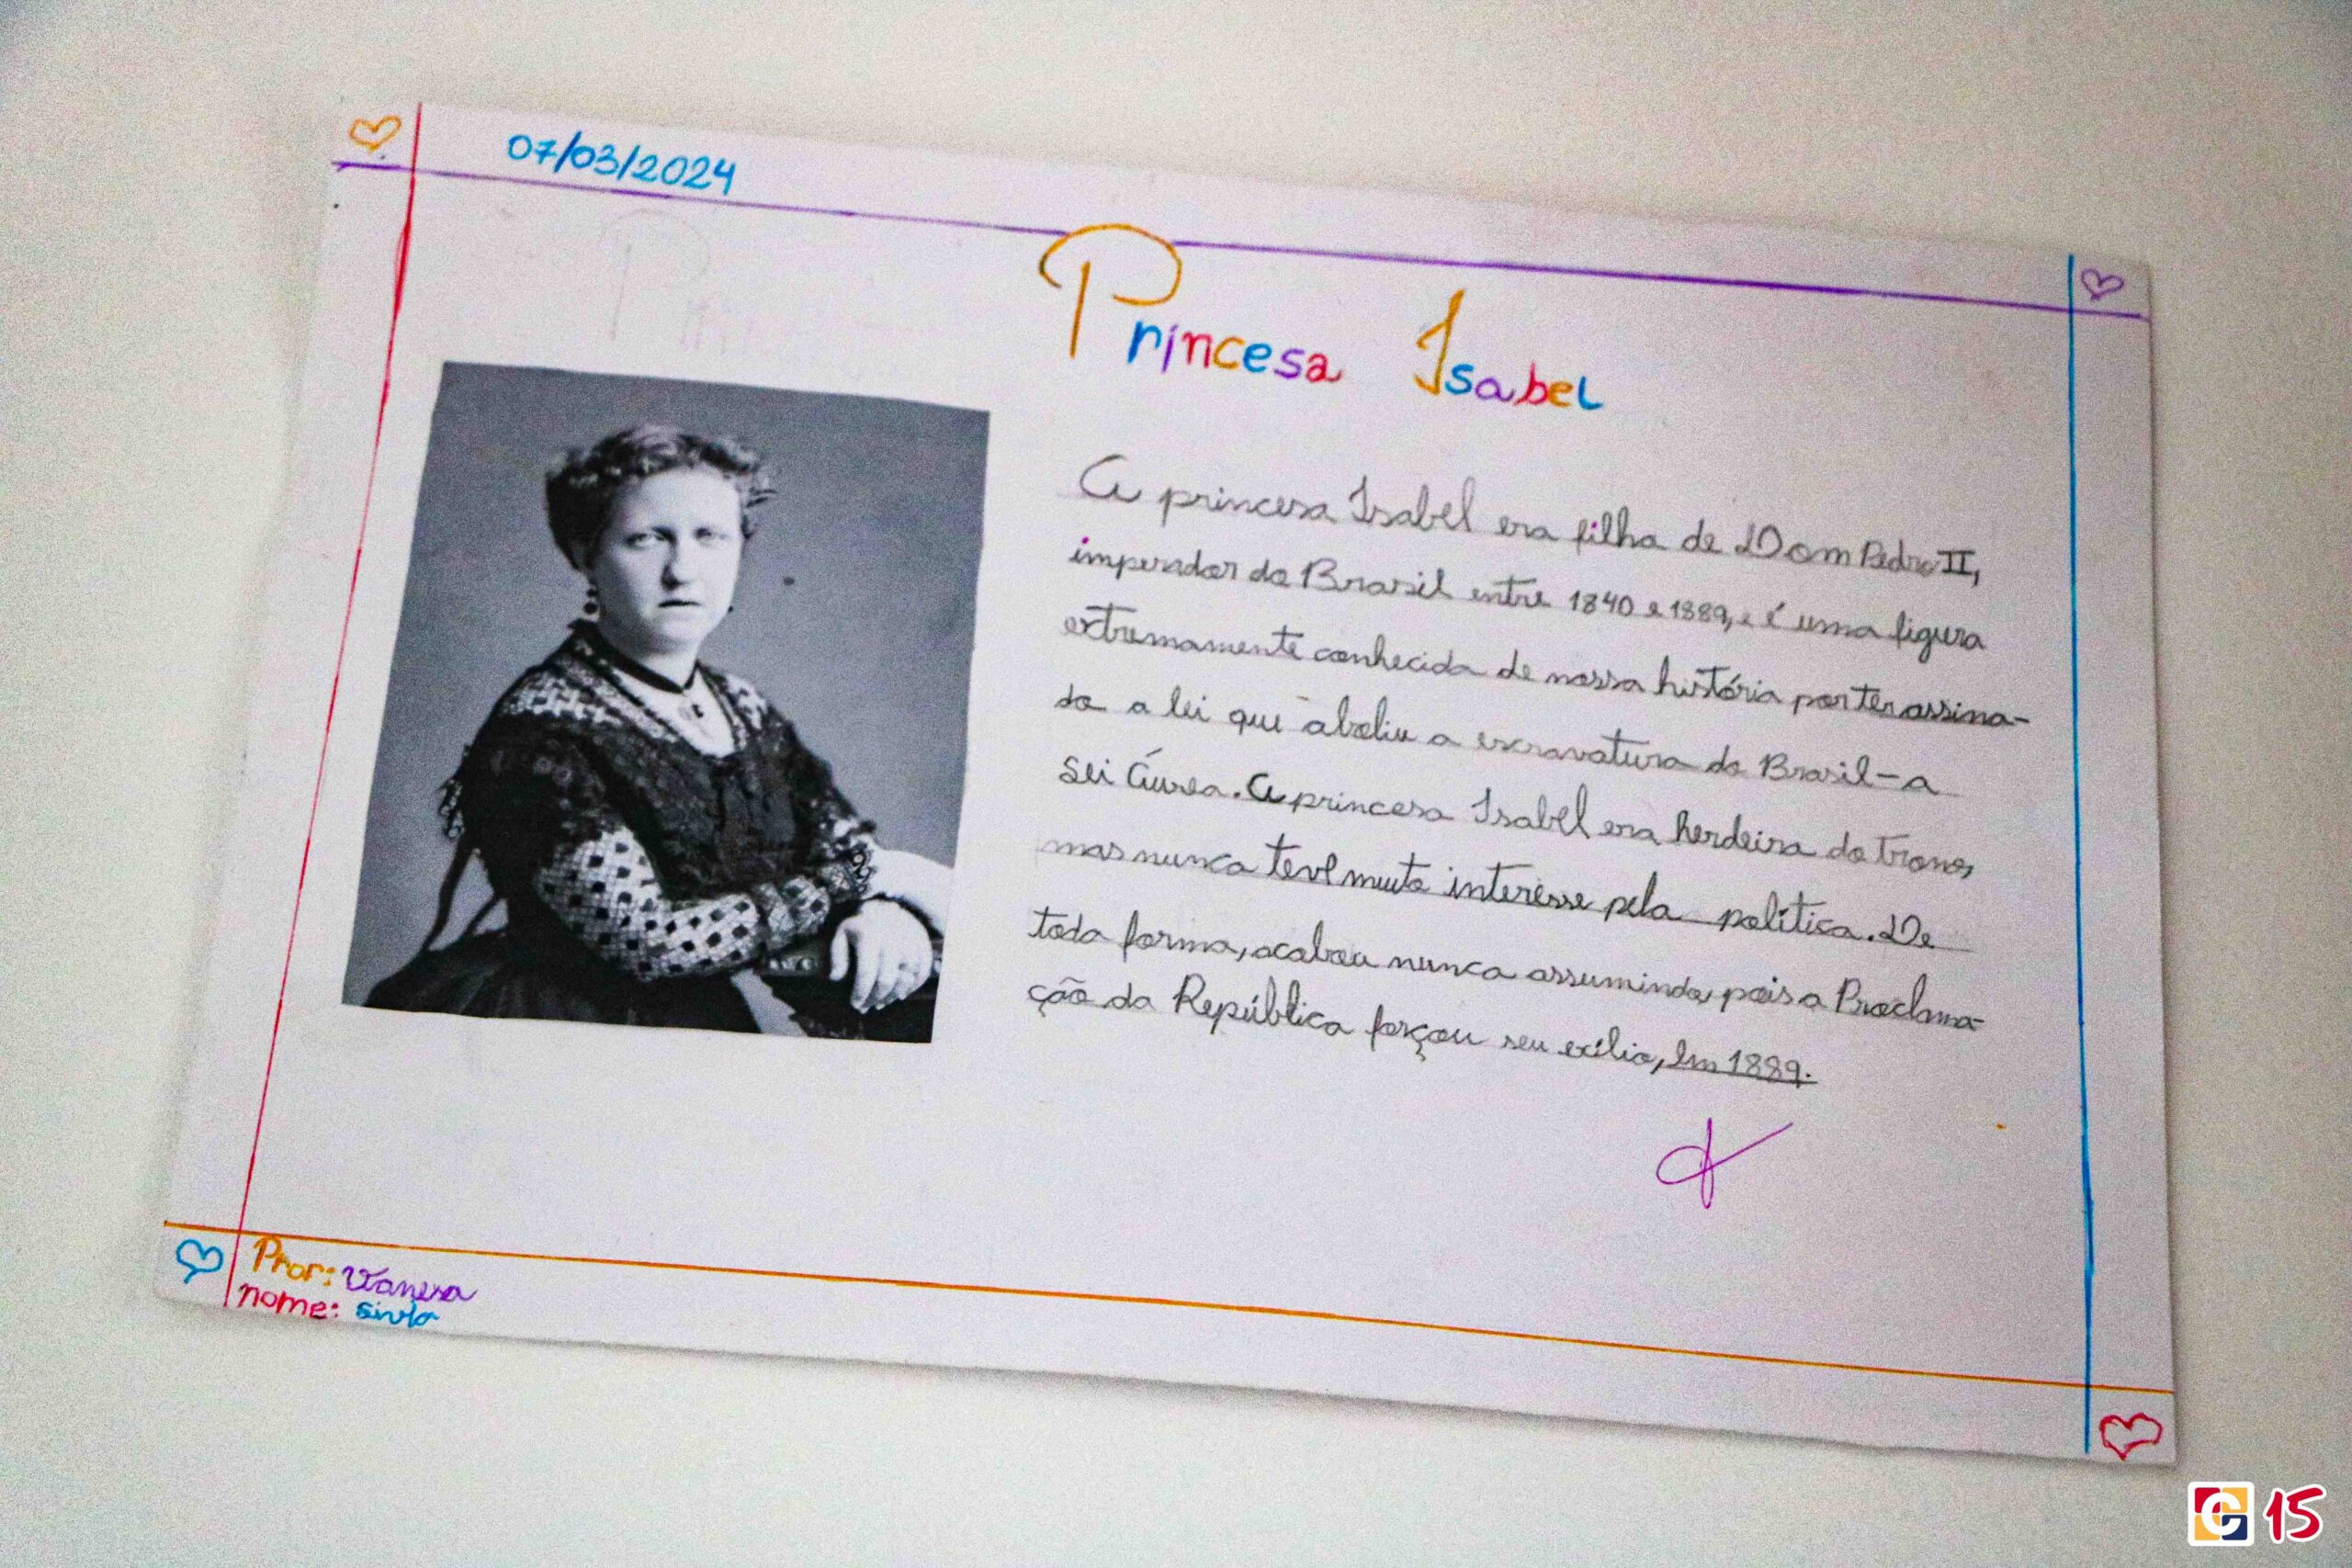 07/03/2024
Princesa Isabel
A princesa Isabel era filha de Dom Pedro II,
imperador do Brasil entre 1840 e 1889, e é uma figura
extremamente conhecida de nossa história por ter assina-
do a lei que aboliu a escravatura do Brasil-a
Lei Áurea. A princesa Isabel era herdeira do trono,
mas nunca teve muito interesse pela política. De
toda forma, acabou nunca assumindo, pois a Proclama-
ção da República forçou seu exílio, em 1889.
Pror: Vanessa
nome:
15